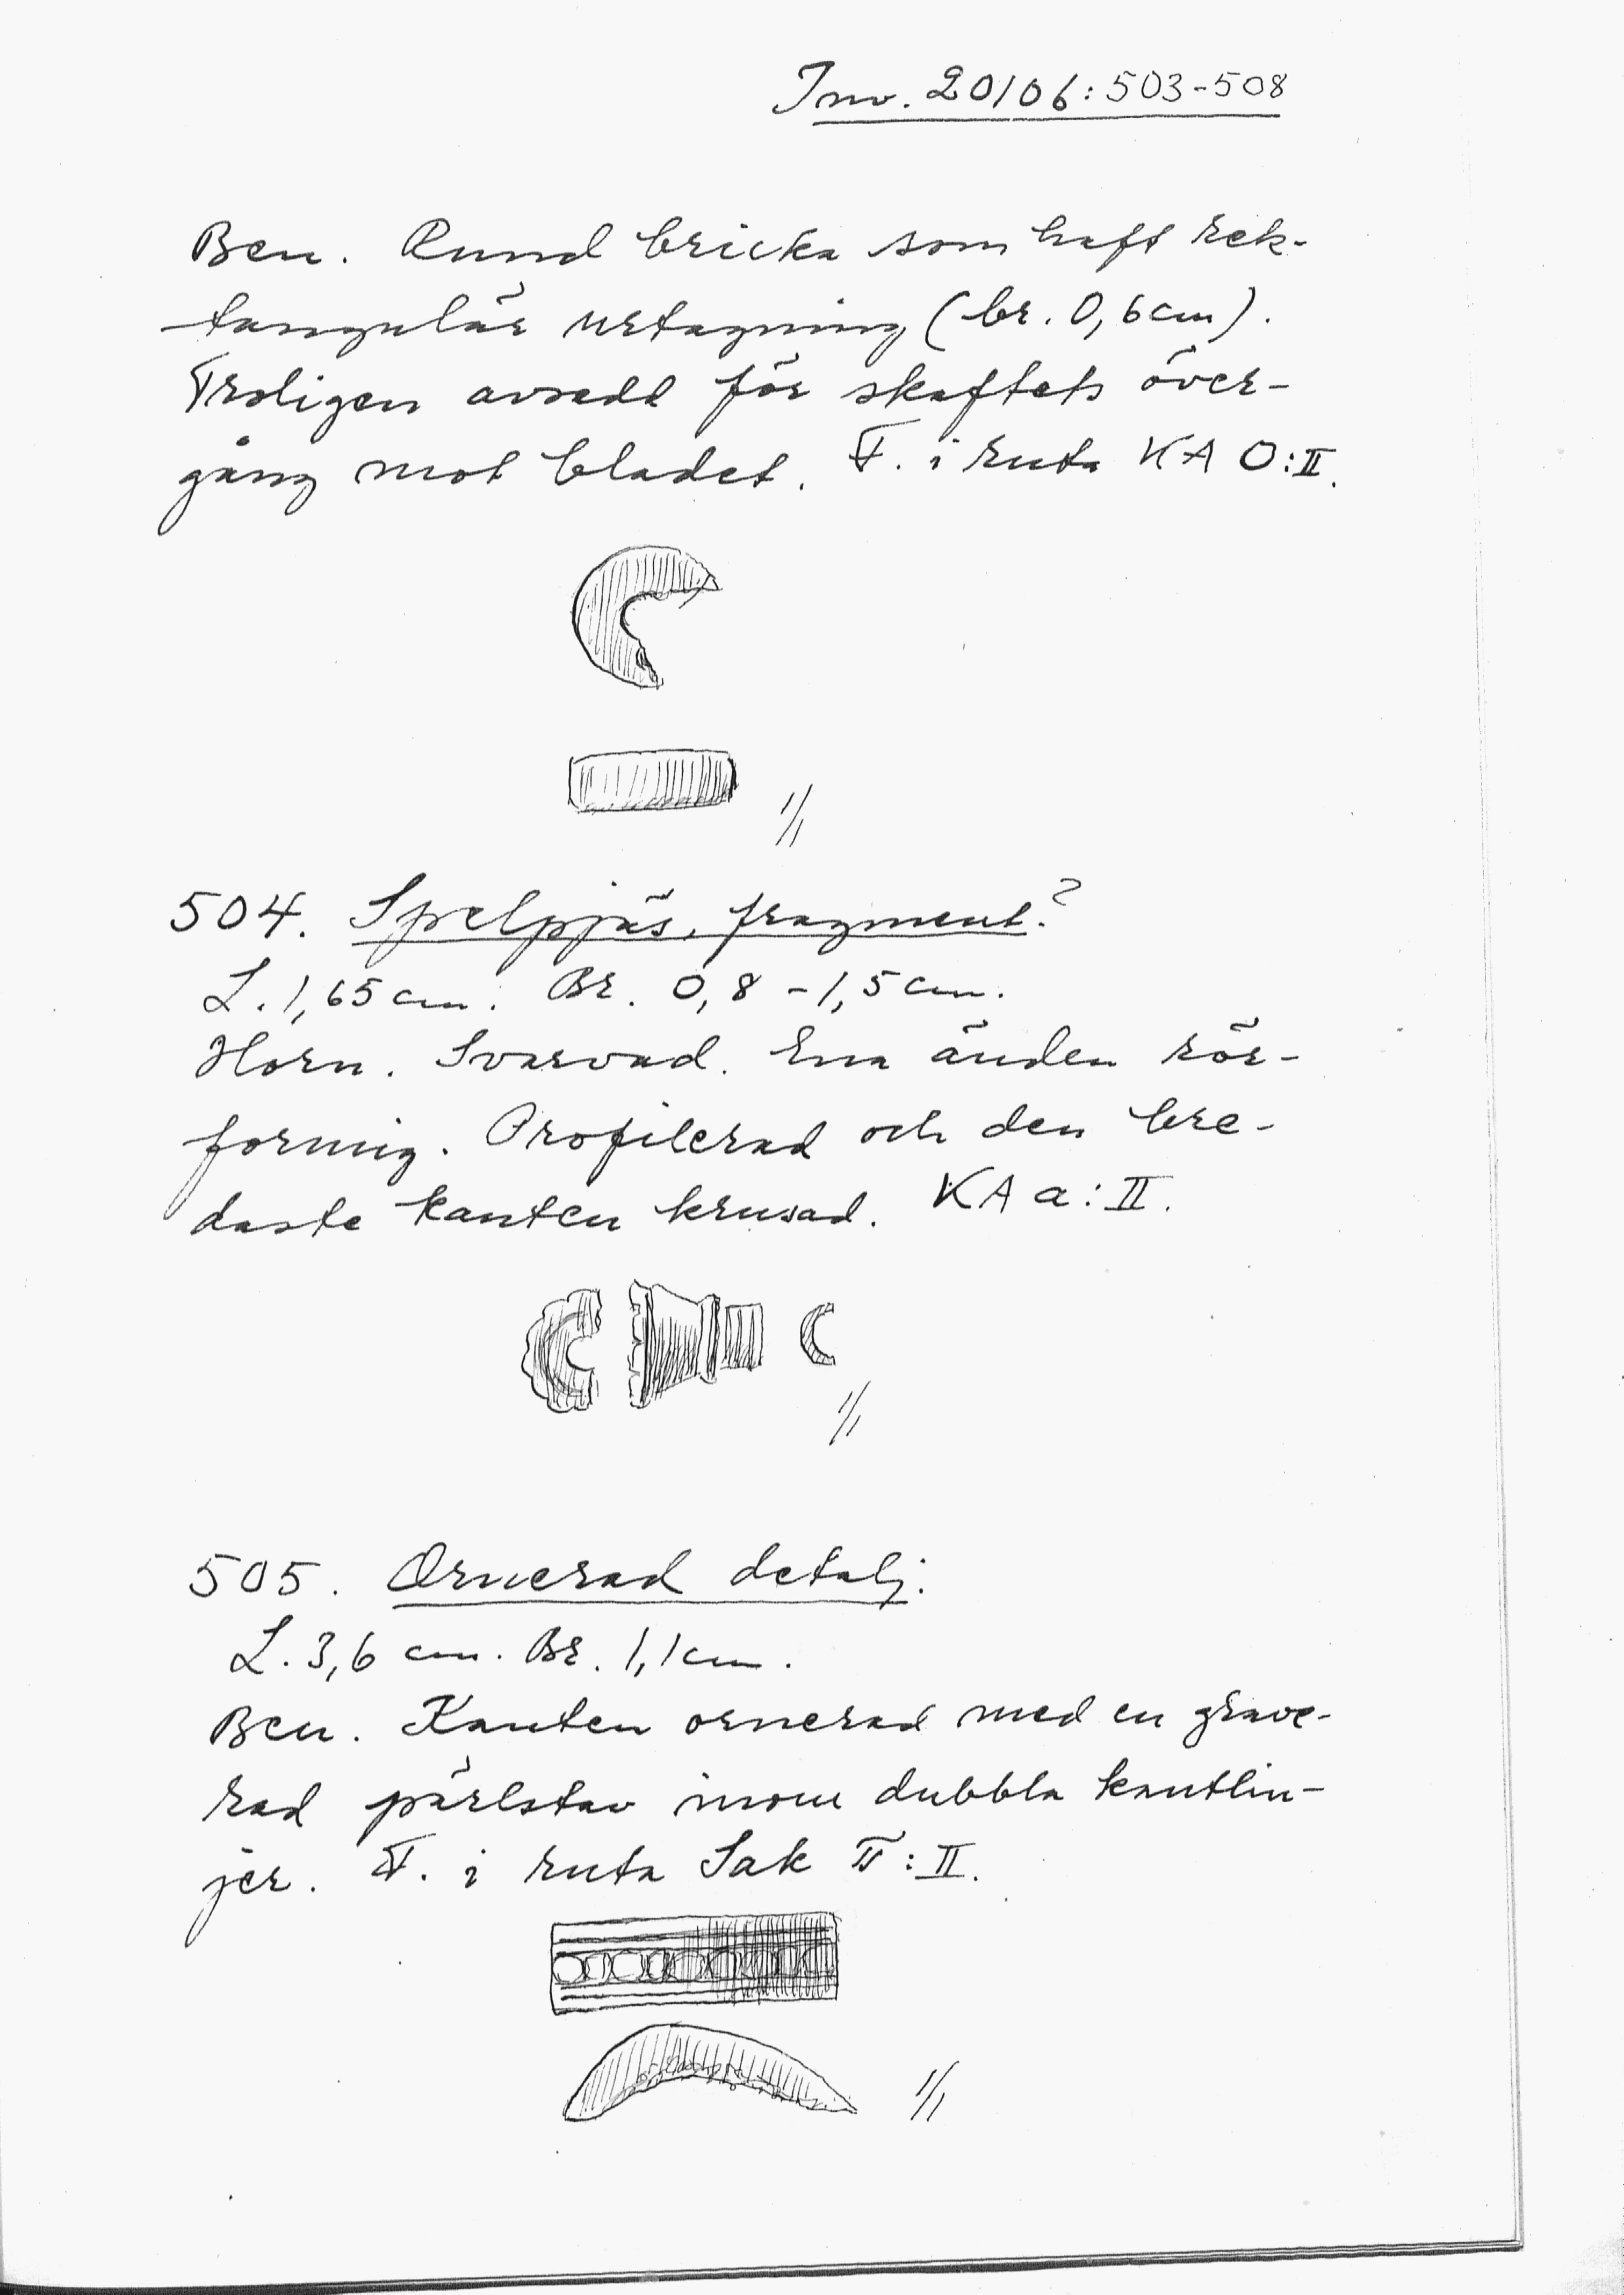 Inv. 20106:503-508
Ben. Rund bricka som haft rek-
tangulär urtagning (br. 0,6 cm).
Troligen avsedd för skaftets över-
gång mot bladet. F. i ruta KA O:II.
1/1
504. Spelpjäs, fragment?
L. 1,65 cm. Br. 0,8 - 1,5 cm.
Horn. Svarvad. Ena änden rör-
formig. Profilerad och den bre-
daste kanten krusad. KA a:II.
1/1
505. Ornerad detalj.
L. 3,6 cm. Br. 1,1 cm.
Ben. Kanten ornerad med en grave-
rad pärlstav inom dubbla kantlin-
jer. F. i ruta Sak :II.
1/1